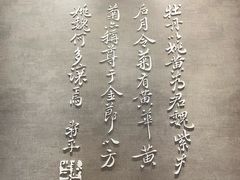 牡丹以姚黄为君魏紫为
后月令菊有黄华黄
菊亦称尊于金节以方
姚魏何多让焉